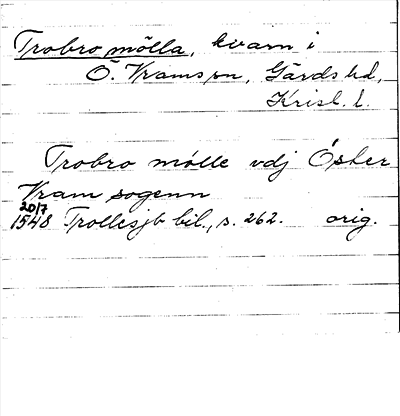 Trobro mölla, kvarn i
Ö. Vrams sn, Gärds hd,
Krist. l.
Trobro mølle vdj Öster
Vram sogenn
20/7
1548 Trollesjb bil., s. 262. orig.